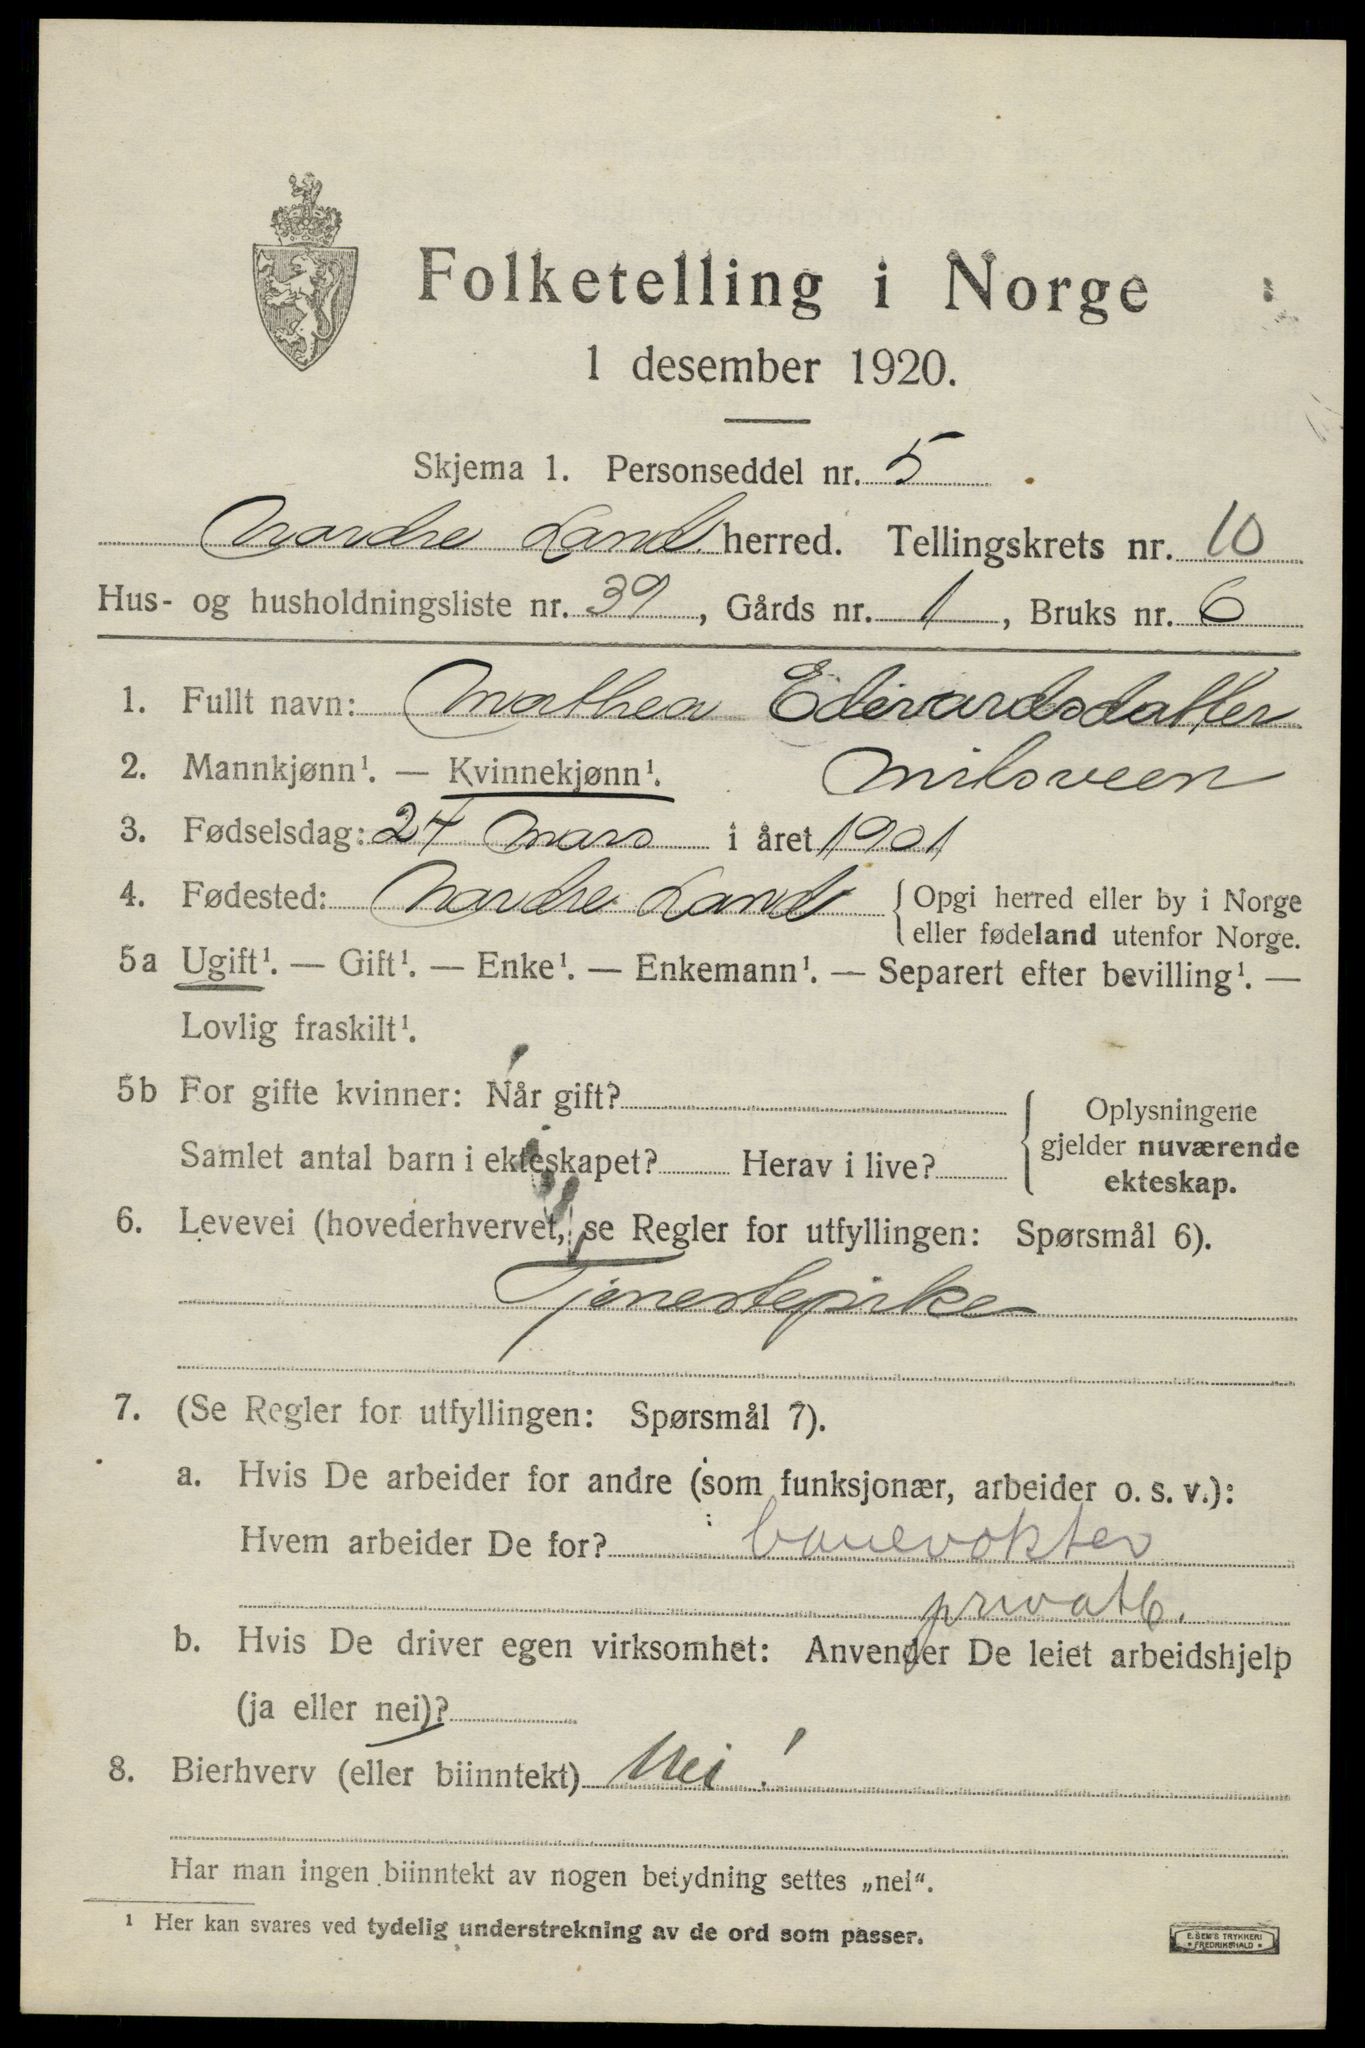 Folketelling i Norge
1 desember 1920.
Skjema 1. Personseddel nr. 5
Nordre Land herred. Tellingskrets nr. 10
Hus- og husholdningsliste nr. 39, Gårds nr. 1, Bruks nr. 6
1. Fullt navn: Mathea Edevardsdatter
2. Mannkjønn¹. — Kvinnekjønn¹. Milsveen
3. Fødselsdag: 24 mars i året 1901
4. Fødested: Nordre Land {Opgi herred eller by i Norge
eller fødeland utenfor Norge.
5a Ugift¹. — Gift¹. — Enke¹. — Enkemann¹. — Separert efter bevilling¹. —
Lovlig fraskilt¹.
5b For gifte kvinner: Når gift? { Oplysningene
gjelder nuværende
ekteskap.
Samlet antal barn i ekteskapet? Herav i live?
6. Levevei (hovederhvervet, se Regler for utfyllingen: Spørsmål 6).
Tjenestepike
7. (Se Regler for utfyllingen: Spørsmål 7).
a. Hvis De arbeider for andre (som funksjonær, arbeider o. s. v.):
Hvem arbeider De for? banevokter
privat
b. Hvis De driver egen virksomhet: Anvender De leiet arbeidshjelp
(ja eller nei)?
8. Bierhverv (eller biinntekt) Nei!
Har man ingen biinntekt av nogen betydning settes „nei".
¹ Her kan svares ved tydelig understrekning av de ord som passer.
E. SEM'S TRYKKERI
• FREDRIKSHALD •